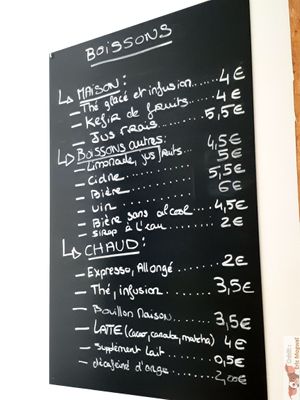 BOISSONS
↳ MAISON :
– Thé glacé et infusion...... 4€
– Kefir de fruits..... 4€
– Jus frais........ 5,5€
↳ Boissons autres :
– Limonade, jus fruits... 4,5€
– Cidre ......... 5€
– Bière ......... 5,5€
– Vin ......... 6€
– Bière sans alcool ..... 4,5€
– Sirop à l'eau ...... 2€
↳ CHAUD :
– Expresso, Allongé ...... 2€
– Thé, infusion ...... 3,5€
– Bouillon Maison ...... 3,5€
– LATTE (cacao, matcha) 4€
– Supplément lait ..... 0,5€
– décaféiné d'orge ..... 2,00€
Crédit :
Eric Mognet